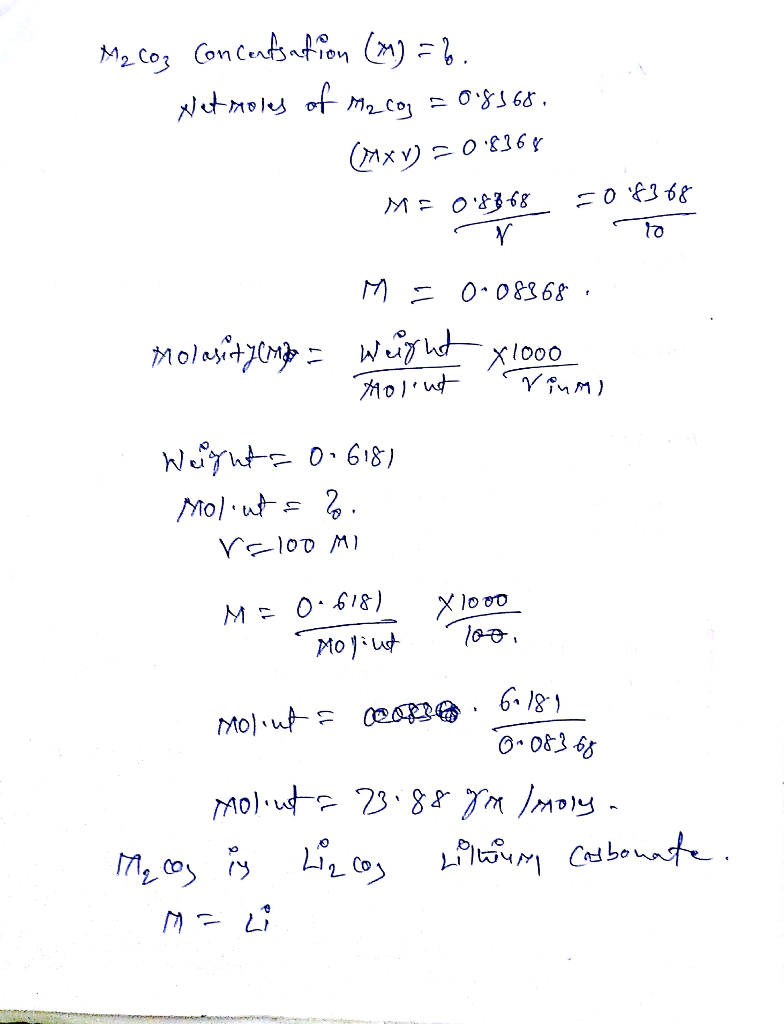 M2CO3 Concentration (M) = ?.
Net moles of M2CO3 = 0.8368.
(M×V) = 0.8368
M = 0.8368/V = 0.8368/10
M = 0.08368.
Molarity(M) = Weight/Mol.wt × 1000/V in Ml
Weight = 0.6181
Mol.wt = ?.
V = 100 Ml
M = 0.6181/Mol.wt × 1000/100.
Mol.wt = 6.181/0.08368
Mol.wt = 73.88 gm/moly.
M2CO3 is Li2CO3 Lithium Carbonate.
M = Li